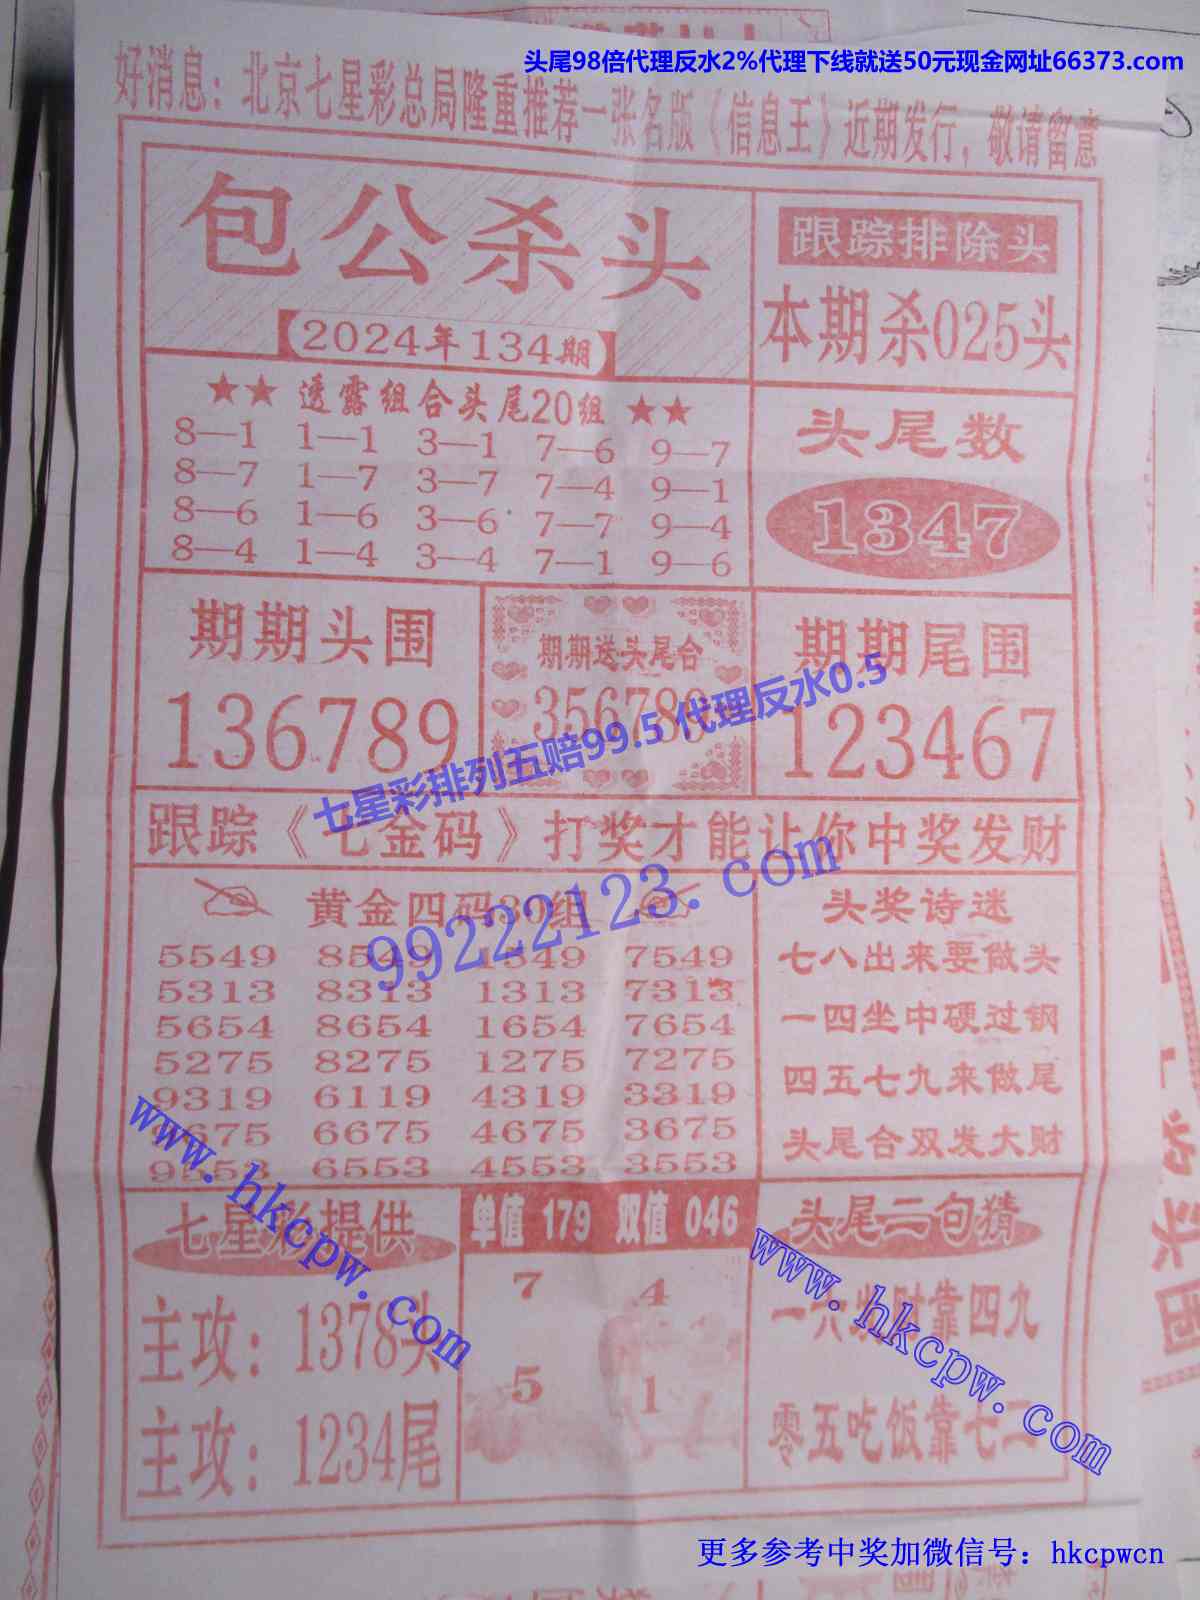 头尾98倍代理反水2%代理下线就送50元现金网址66373.com
好消息：北京七星彩总局隆重推荐一张名版《信息王》近期发行，敬请留意
包公杀头
2024年134期
跟踪排除头
本期杀025头
★★ 透露组合头尾20组 ★★
8—1 1—1 3—1 7—6 9—7
8—7 1—7 3—7 7—4 9—1
8—6 1—6 3—6 7—7 9—4
8—4 1—4 3—4 7—1 9—6
头尾数
1347
期期头围
136789
期期送头尾合
356789
期期尾围
123467
七星彩排列五赔99.5代理反水0.5
跟踪《七金码》打奖才能让你中奖发财
99222123.com
黄金四码 组
5549 8549 1549 7549
5313 8313 1313 7313
5654 8654 1654 7654
5275 8275 1275 7275
9319 6119 4319 3319
9675 6675 4675 3675
9553 6553 4553 3553
头奖诗迷
七八出来要做头
一四坐中硬过钢
四五七九来做尾
头尾合双发大财
www.hkcpw.com
七星彩提供
主攻：1378头
主攻：1234尾
单值 179 双值 046
7 4
5 1
头尾二句猜
一六 财靠四九
零五吃饭靠七二
www.hkcpw.com
更多参考中奖加微信号：hkcpwcn